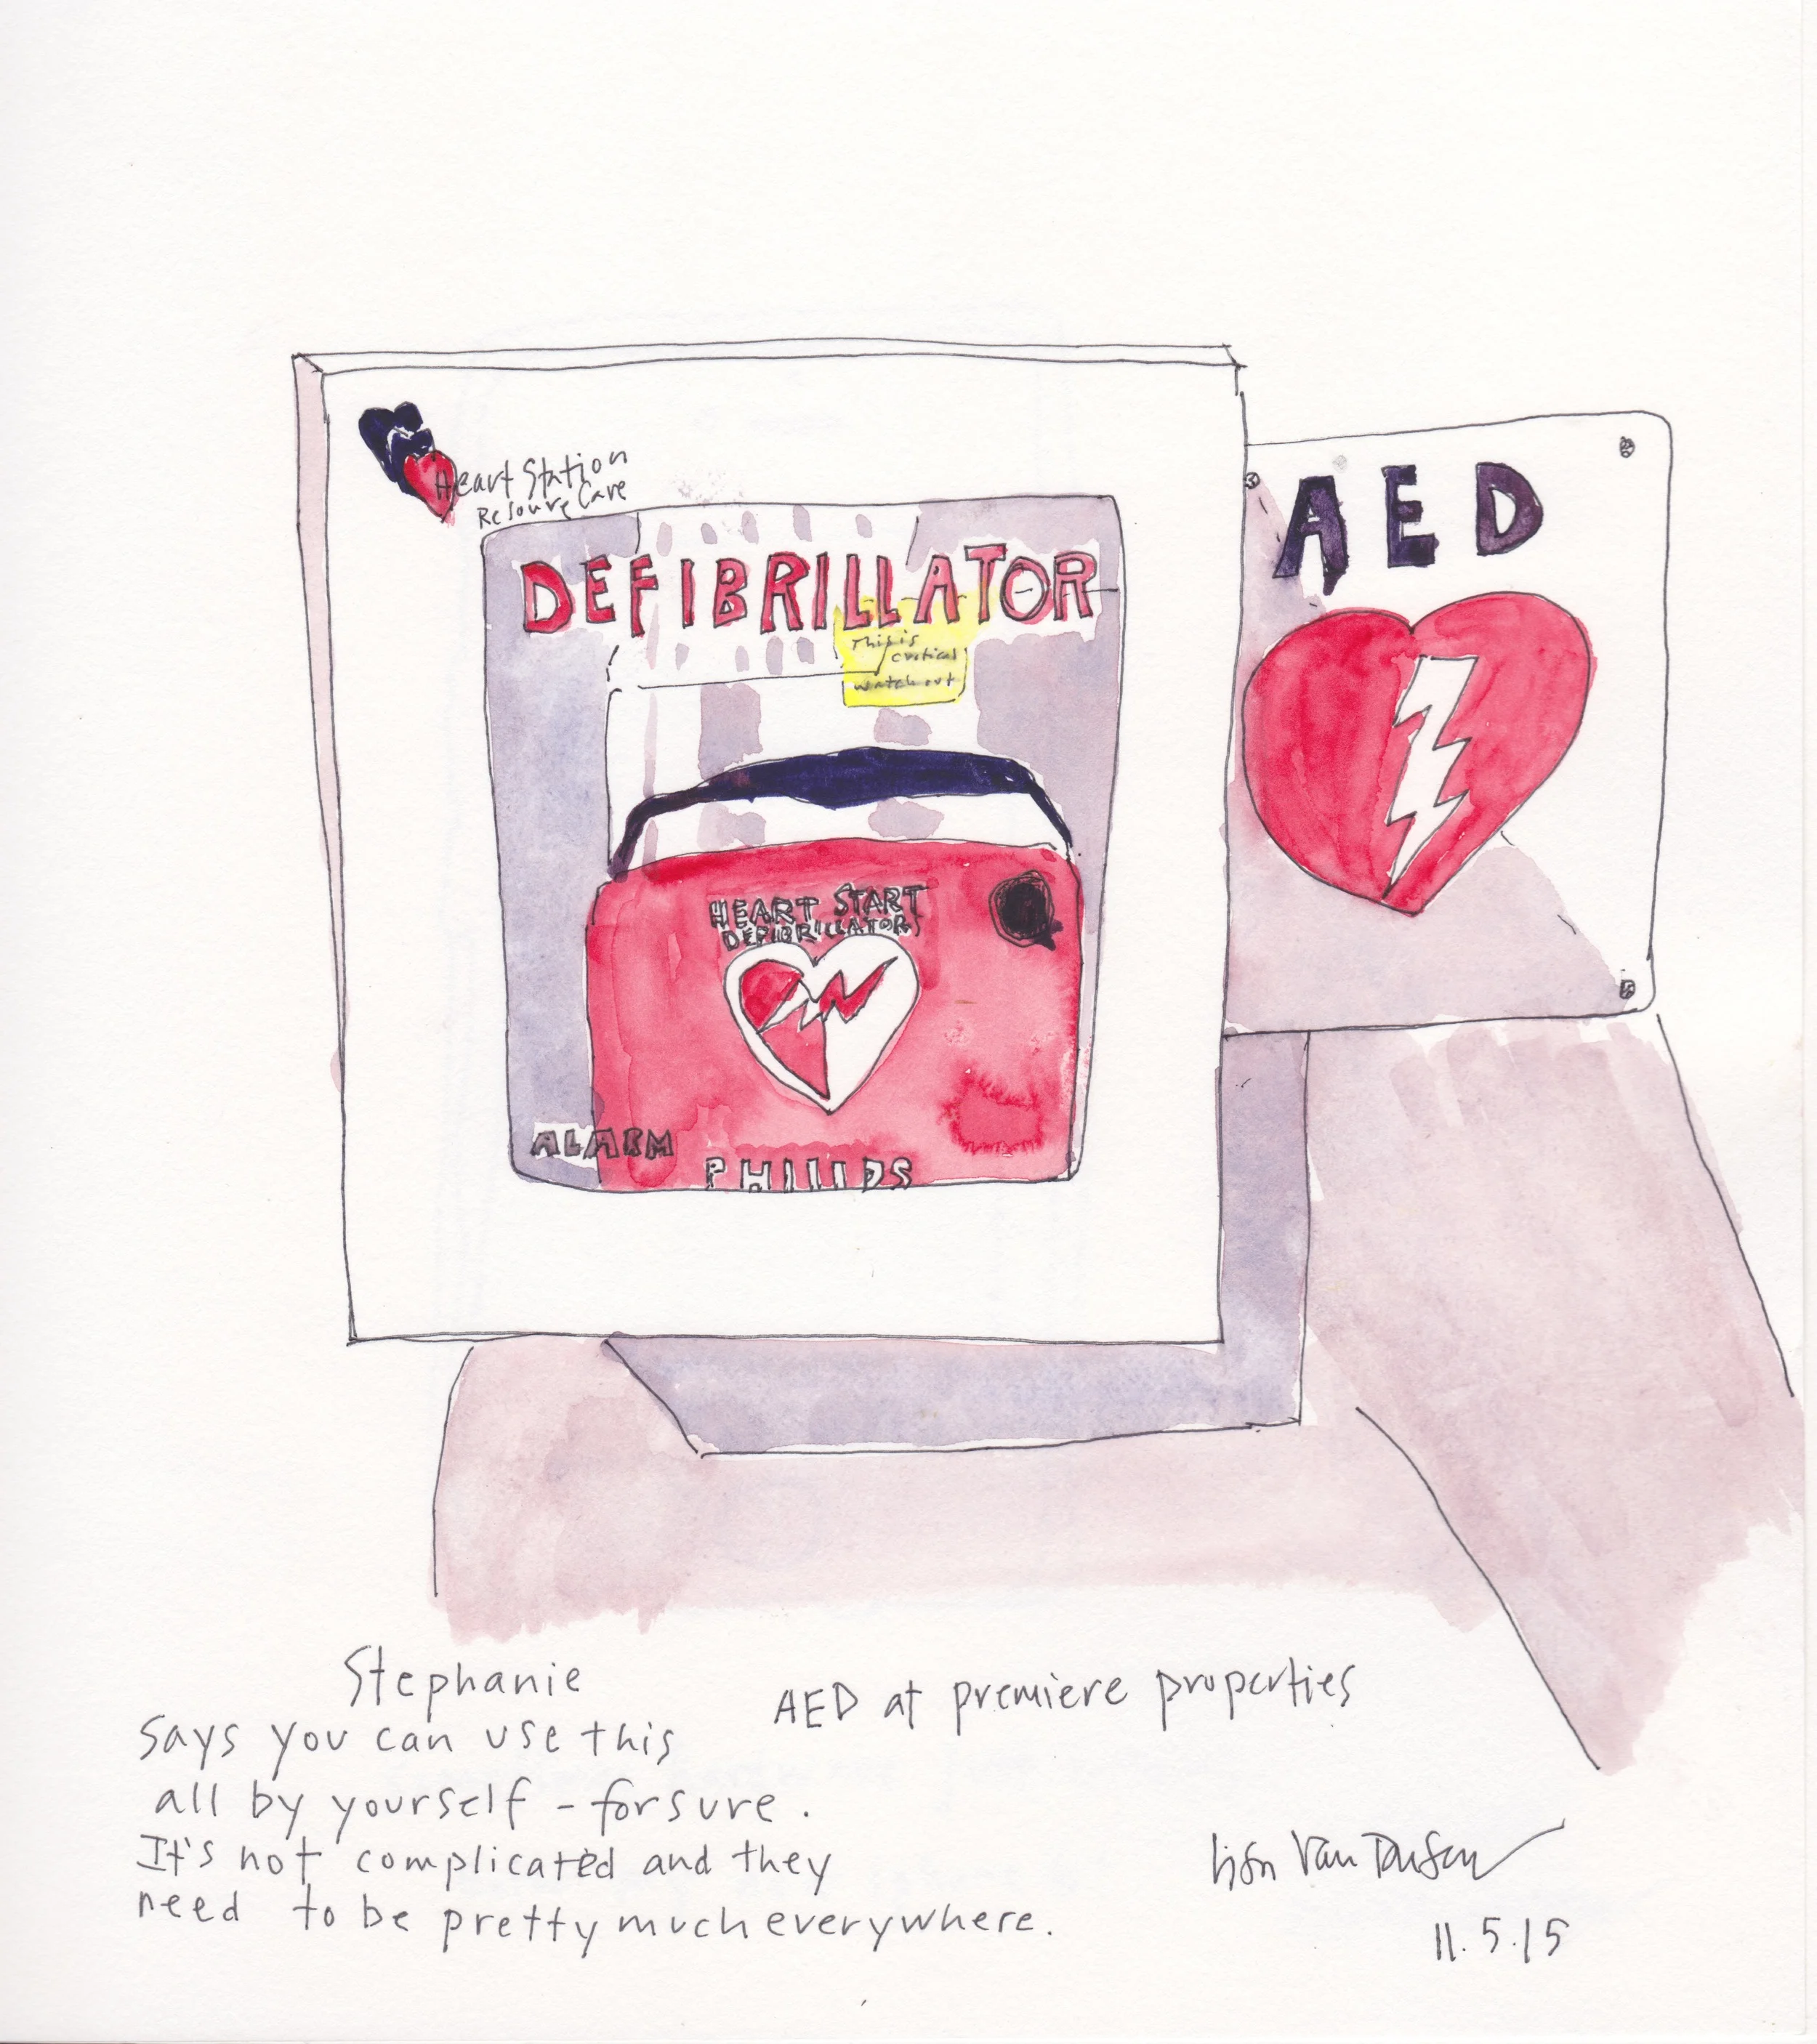 Heart Station
Resource Care
DEFIBRILLATOR
This is
critical
watch out
AED
HEART START
DEFIBRILLATOR
ALARM
PHILIPS
Stephanie
says you can use this
all by yourself - for sure.
It's not complicated and they
need to be pretty much everywhere.
AED at premiere properties
Van Dusen
11.5.15